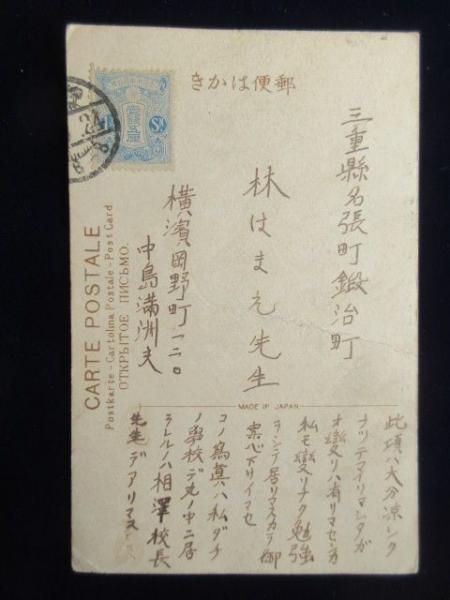 郵便はかき
三重縣名張町鍛治町
林はまえ先生
橫濱岡野町一二〇
中島満洲夫
CARTE POSTALE
Postkarte - Cartolina Postale - Post Card
ОТКРЫТОЕ ПИСЬМО.
MADE IN JAPAN
此項ハ大分凉シク
ナツテマイリマシタガ
オ變リハ有リマセンカ
私モ變リナク勉強
ヲシテ居リマスカラ御
案心下サイマセ
コノ寫眞ハ私ダチ
ノ學校デ丸ノ中ニ居
ラレルノハ相澤校長
先生デアリマス